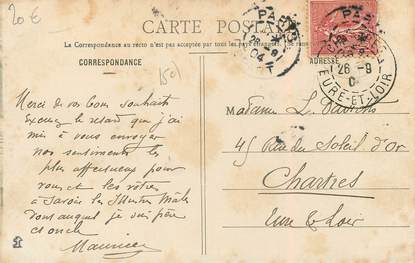 20€
CARTE POSTALE
La Correspondance au recto n'est pas acceptée par tous les pays étrangers
CORRESPONDANCE
ADRESSE
26 - 9
EURE-ET-LOIR
Merci de vos bons souhaits
Excusez le retard que j'ai
mis à vous envoyer
nos sentiments les
plus affectueux pour
vous et les vôtres
à savoir les
dont auquel je suis père
et oncle
Maurice
Madame L.
45 Rue du Soleil d'Or
Chartres
Eure & Loir